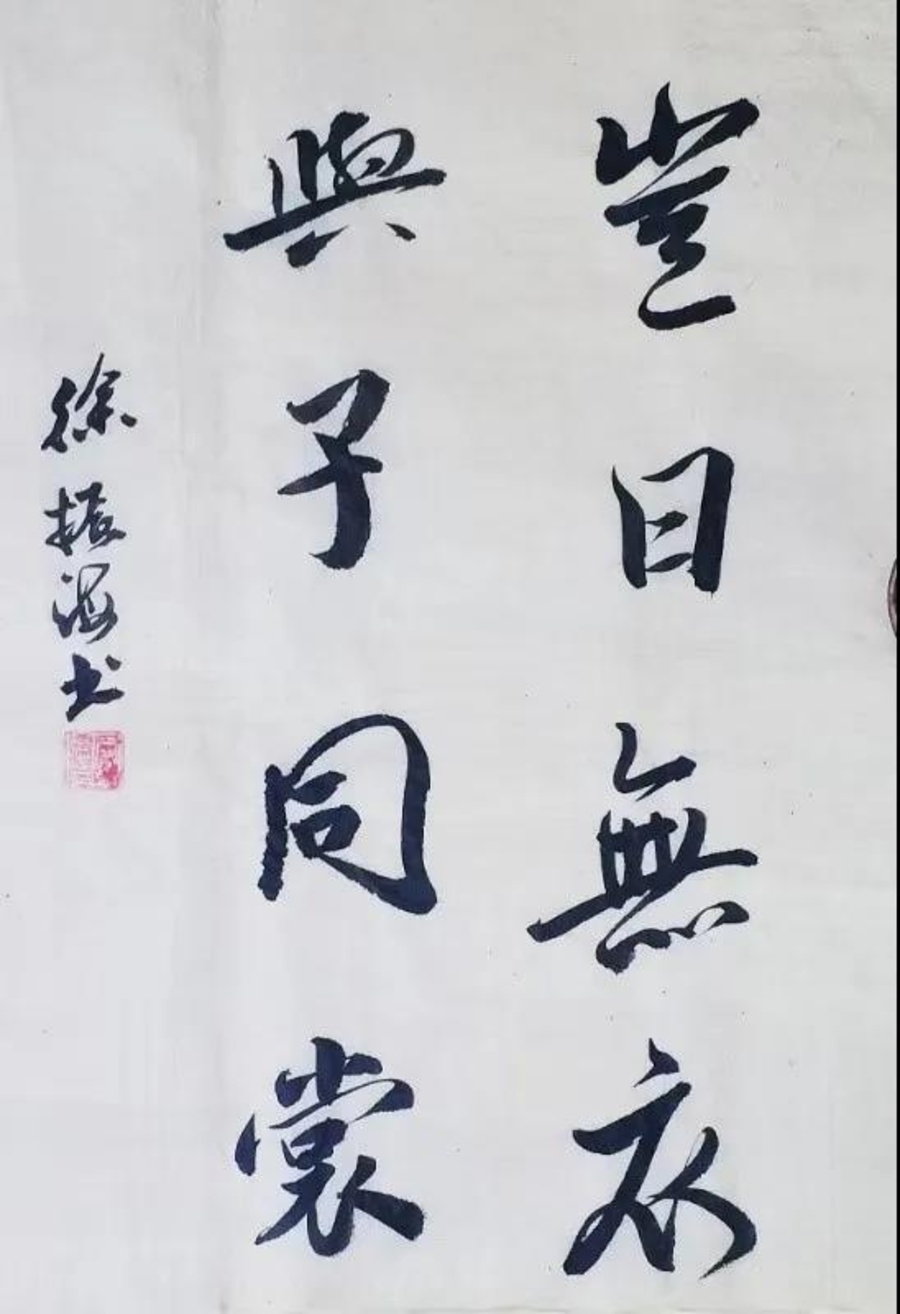 豈曰無衣
與子同裳
徐振海书